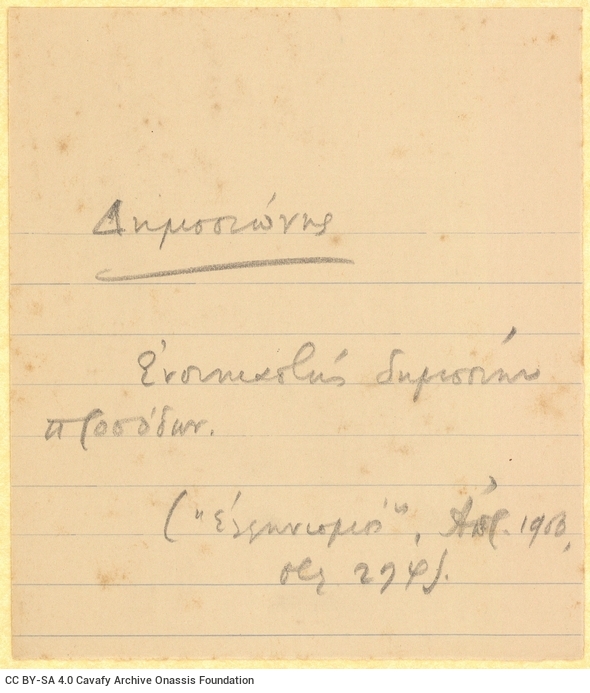 Δημοσιώνης
Ἐνοικιαστὴς δημοσίων
προσόδων.
("Ἑλληνισμὸς", Ἀπρ. 1903,
σελ
CC BY-SA 4.0 Cavafy Archive Onassis Foundation